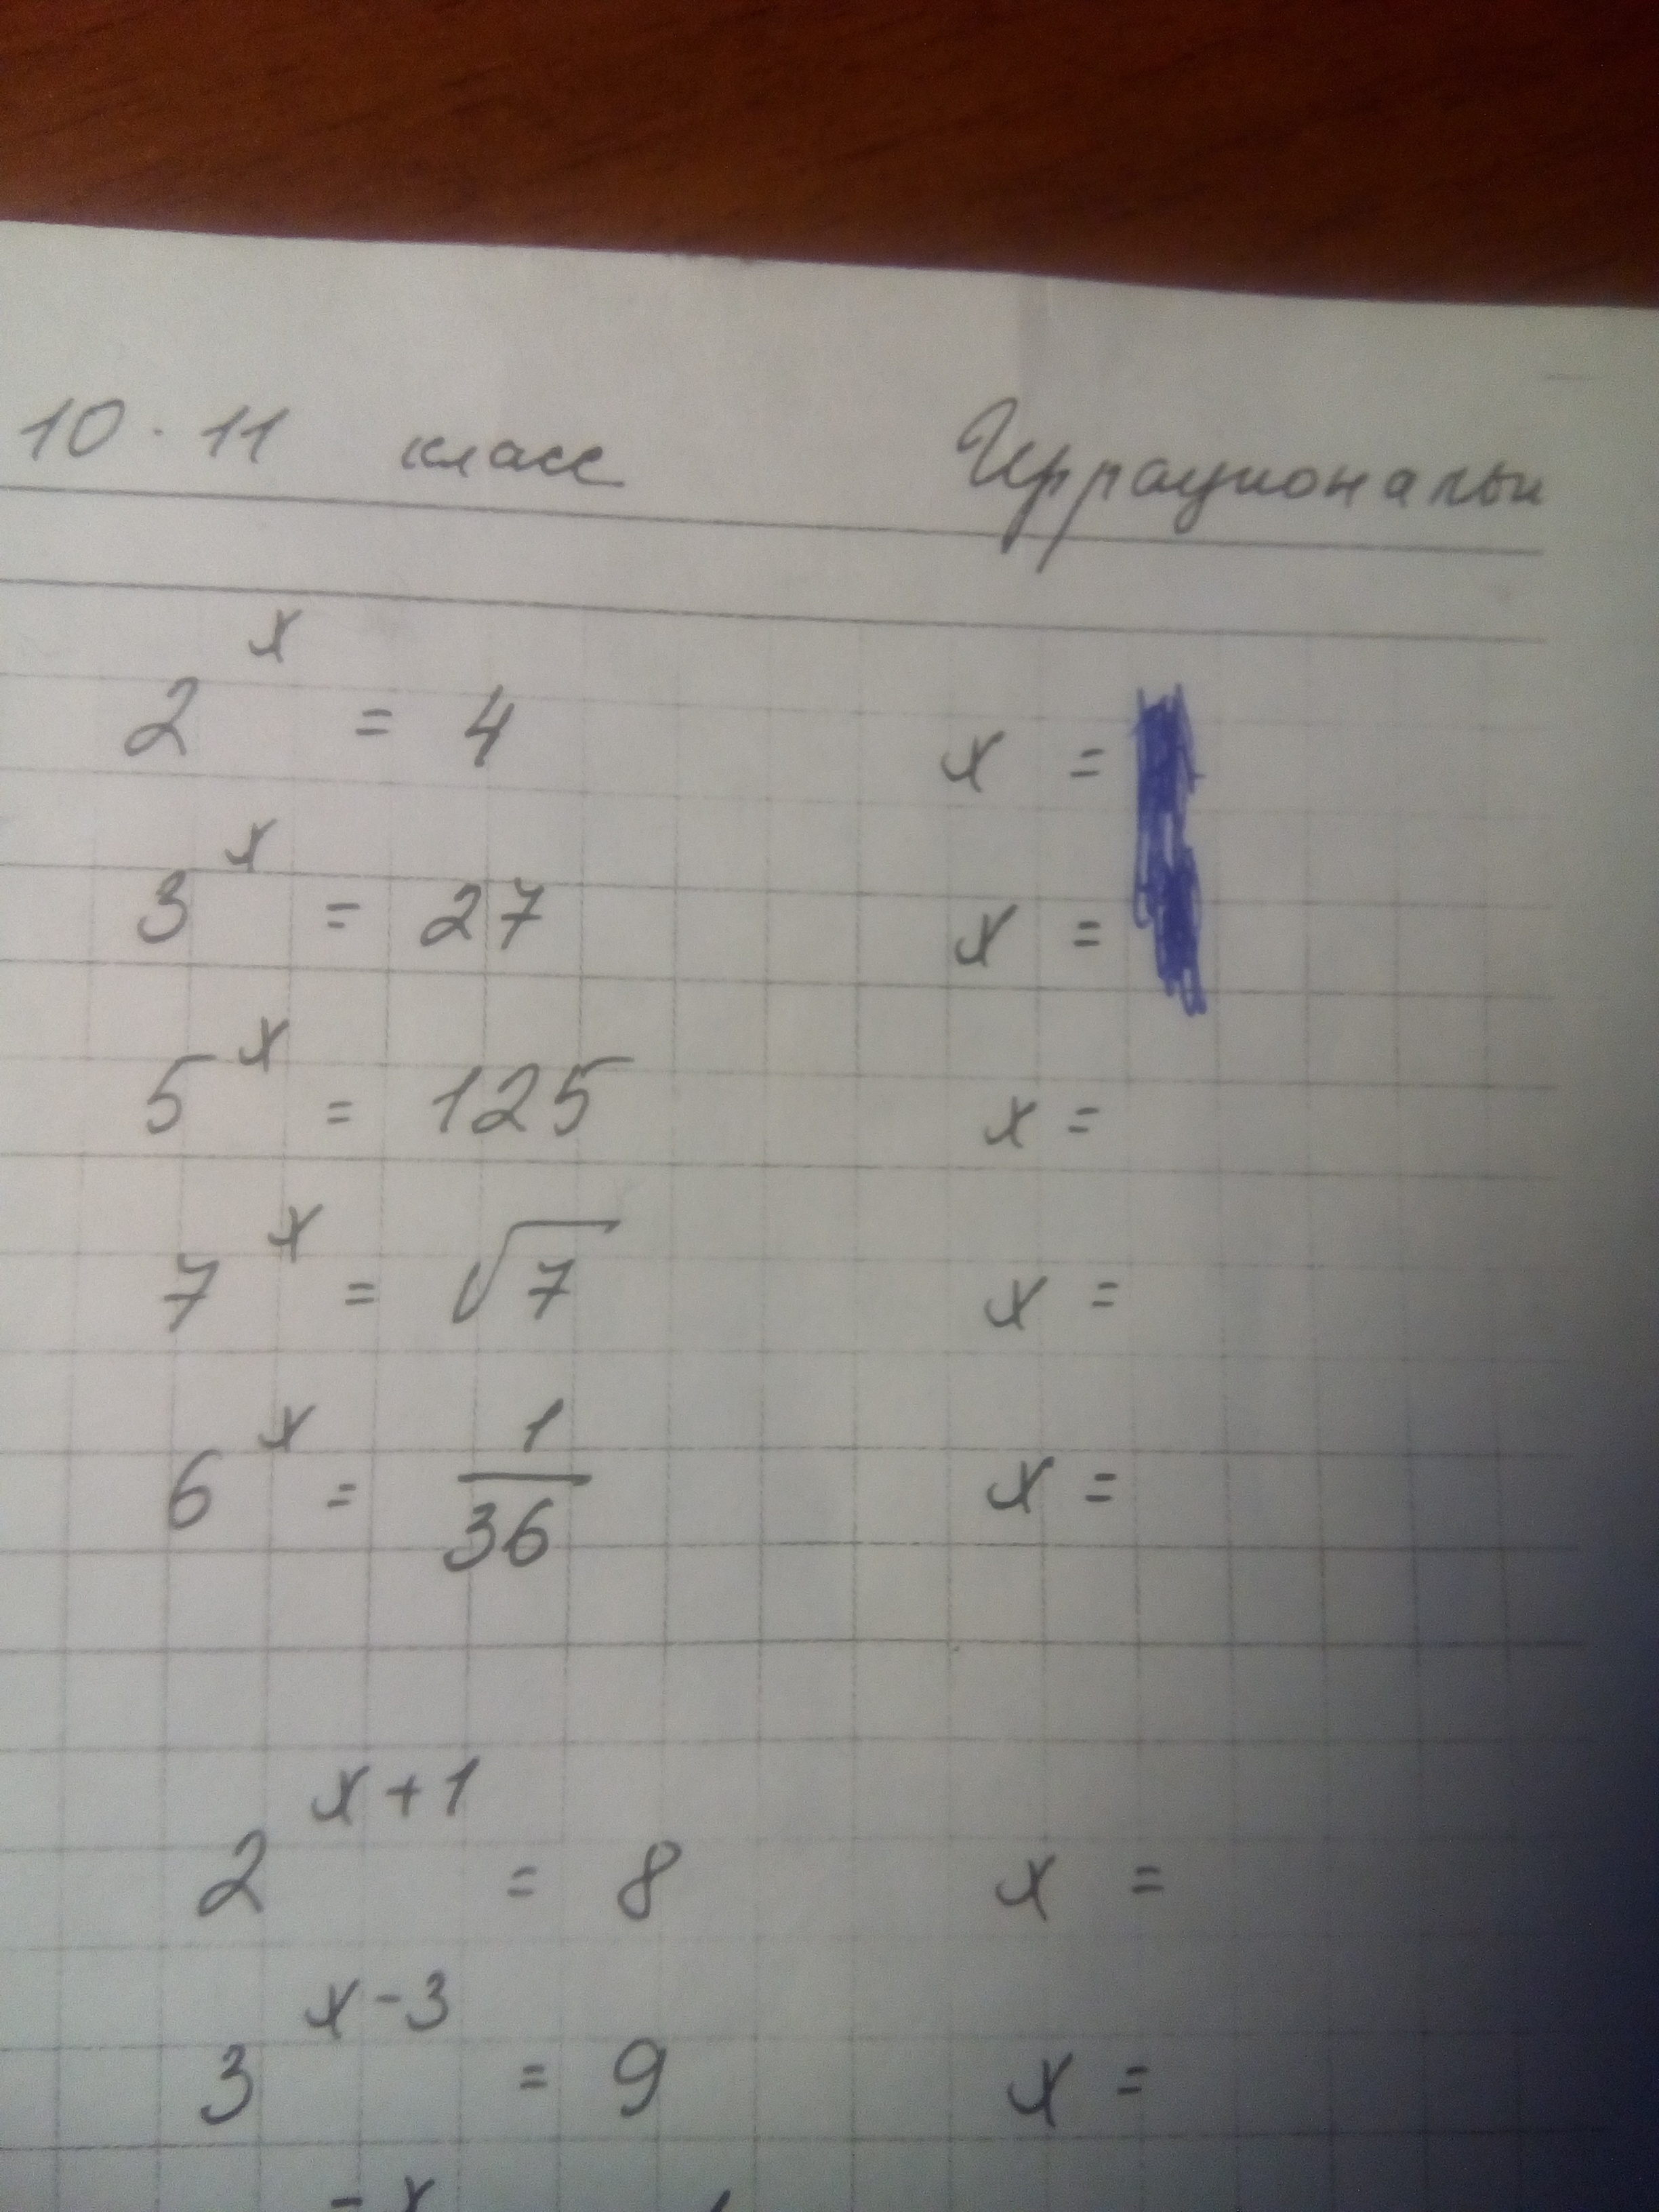 10-11 класс Иррациональн
2^x = 4 x =
3^x = 27 x =
5^x = 125 x =
7^x = √7 x =
6^x = 1/36 x =
2^(x+1) = 8 x =
3^(x-3) = 9 x =
-x